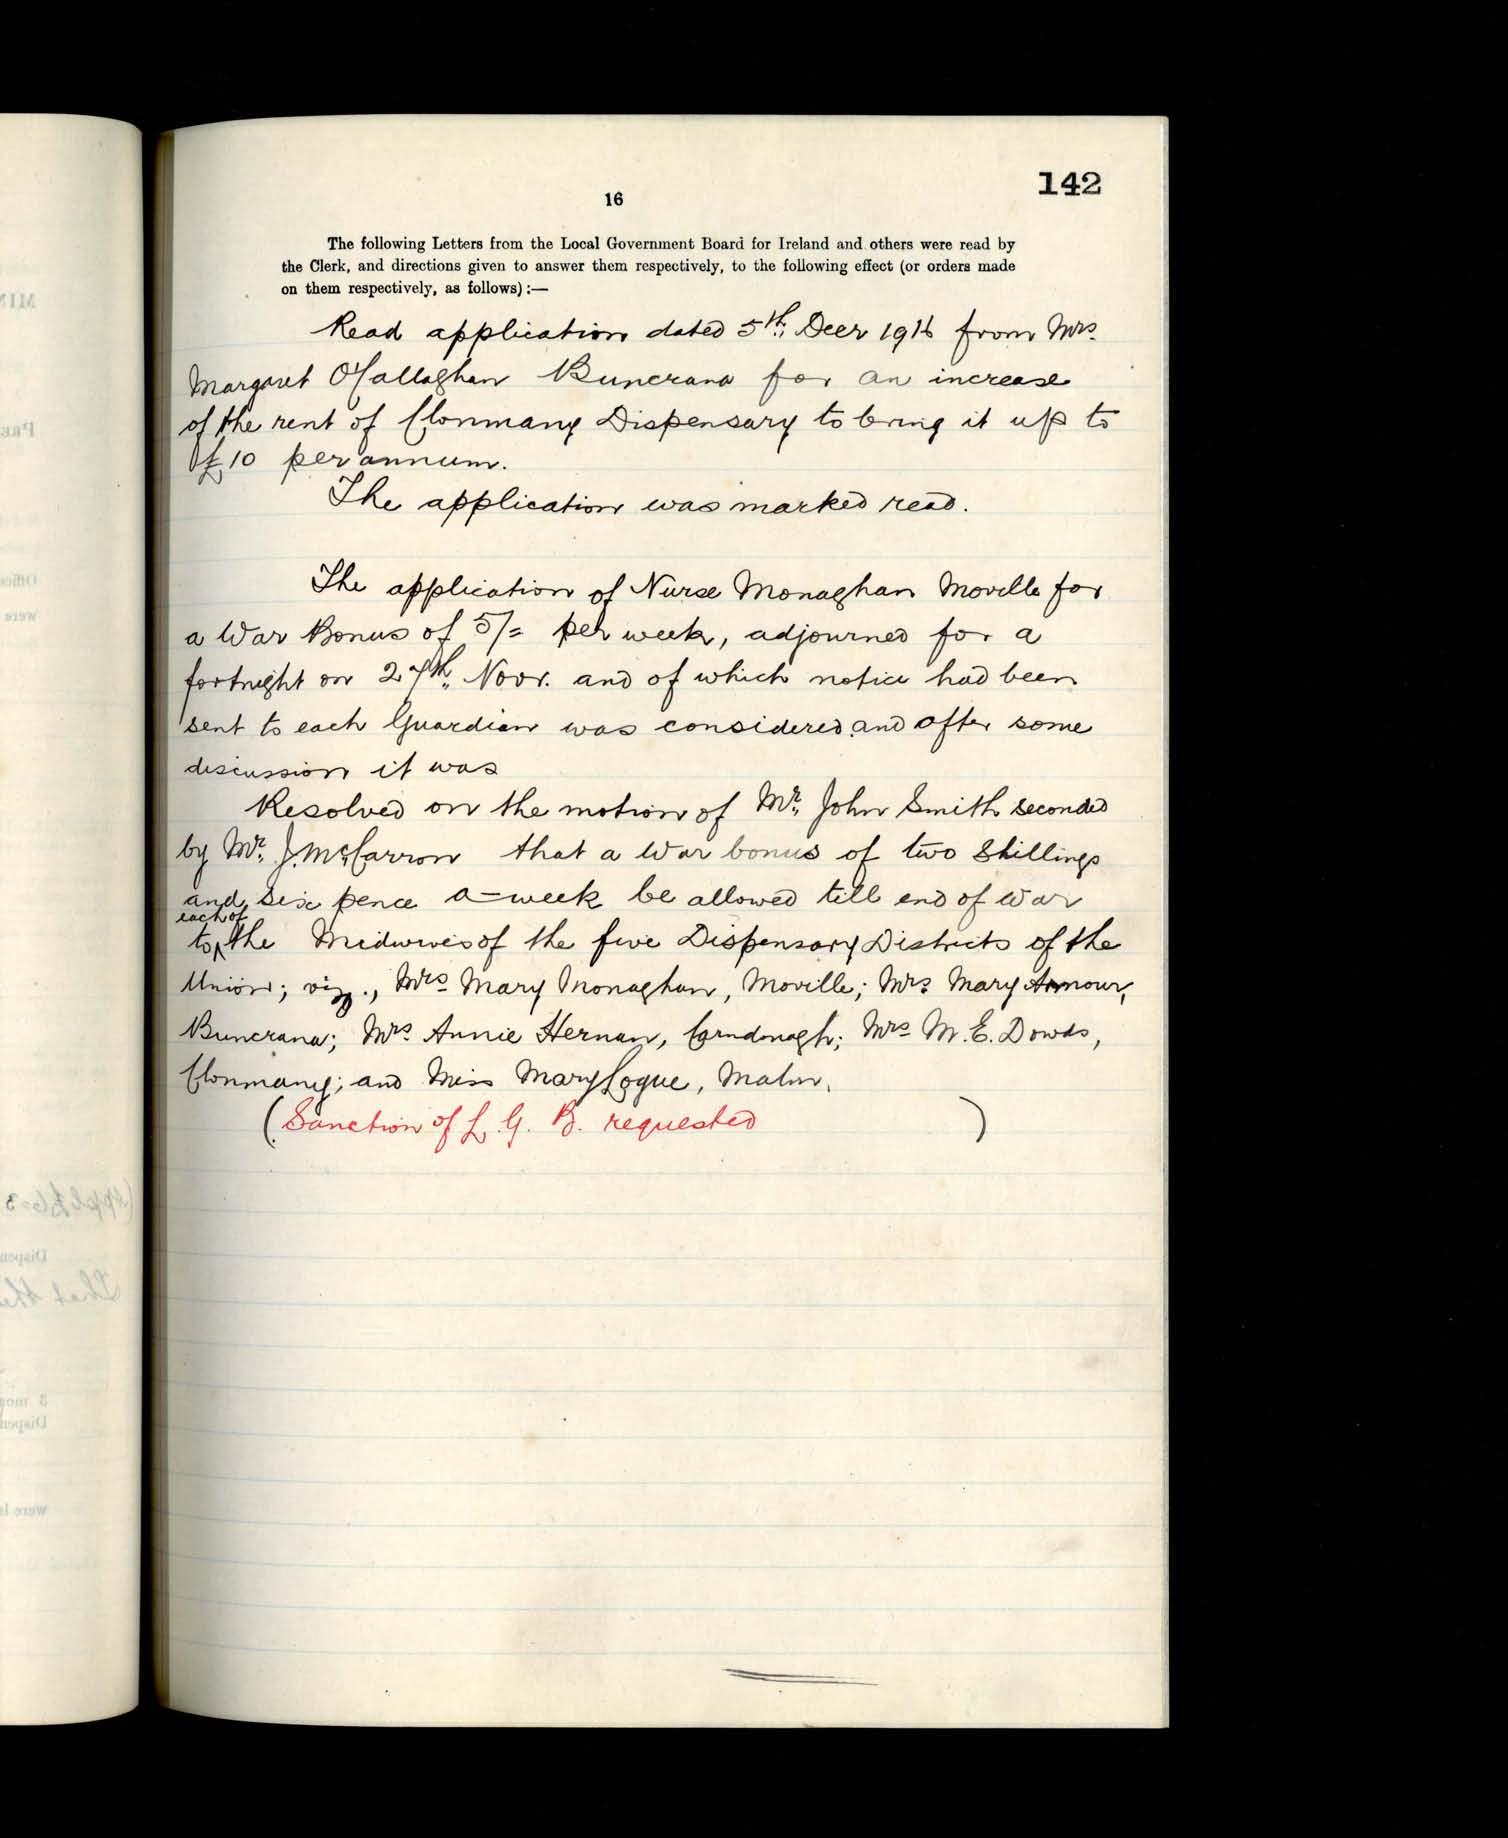 142
16
The following Letters from the Local Government Board for Ireland and others were read by
the Clerk, and directions given to answer them respectively, to the following effect (or orders made
on them respectively, as follows):—
Read application dated 5th Decr 1916 from Mrs.
Margaret O'Callaghan Buncrana for an increase
of the rent of Clonmany Dispensary to bring it up to
£10 per annum.
The application was marked read.
The application of Nurse Monaghan Moville for
a War Bonus of 5/= per week, adjourned for a
fortnight on 27th Novr. and of which notice had been
sent to each Guardian was considered and after some
discussion it was
Resolved on the motion of Mr. John Smith seconded
by Mr. J. McCarron that a War bonus of two Shillings
and six pence a-week be allowed till end of War
to each of the Midwives of the five Dispensary Districts of the
Union; viz., Mrs Mary Monaghan, Moville; Mrs Mary Armour,
Buncrana; Mrs. Annie Hernan, Carndonagh; Mrs M. E. Dowds,
Clonmany; and Miss Mary Logue, Malin.
(Sanction of L. G. B. requested )